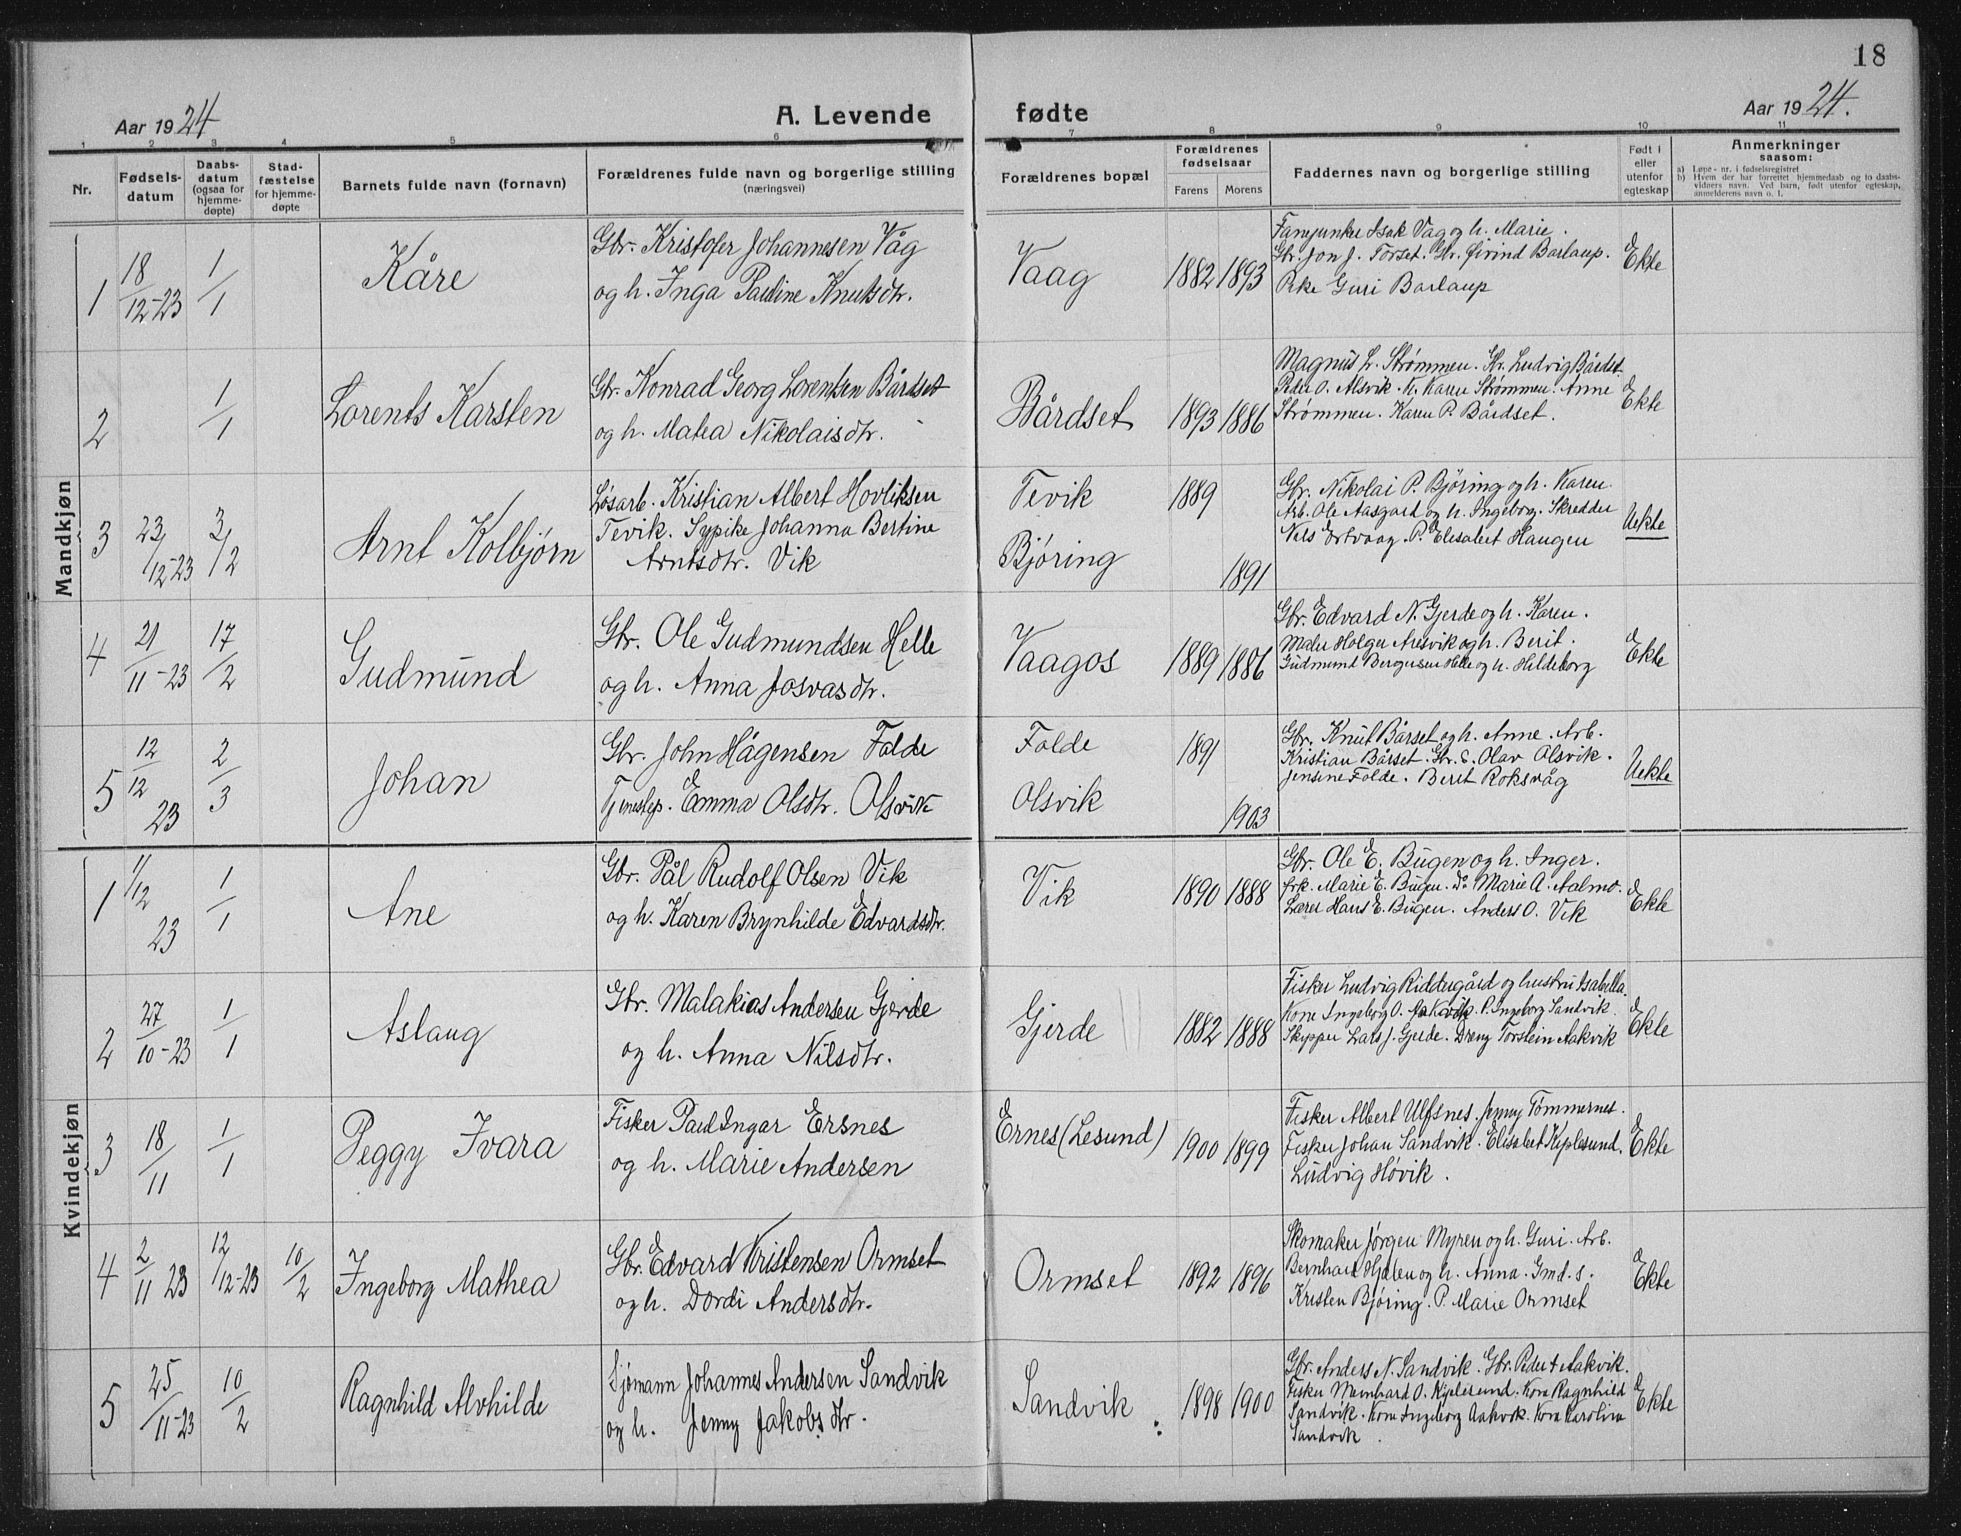 18
Aar 1924
A. Levende fødte
Aar 1924.
1 2 3 4 5 6 7 8 9 10 11
Nr.
Fødsels-
datum
Daabs-
datum
(ogsaa for
hjemme-
døpte)
Stad-
fæstelse
for hjemme-
døpte
Barnets fulde navn (fornavn)
Forældrenes fulde navn og borgerlige stilling
(næringsvei)
Forældrenes bopæl
Forældrenes
fødselsaar
Farens Morens
Faddernes navn og borgerlige stilling
Født i
eller
utenfor
egteskap
Anmerkninger
saasom:
a) Løpe-nr. i fødselsregistret
b) Hvem der har forrettet hjemmedaab og to daabs-
vidners navn. Ved barn, født utenfor egteskap,
anmelderens navn o. l.
Mandkjøn
1
18/12-23
1/1
Kåre
Gbr. Kristofer Johannesen Våg
og h. Inga Pauline Knutsdtr.
Vaag
1882 1893
Fanejunker Isak Vag og h. Marie.
Gbr. Jon J. Torset. Gbr. Øivind Barlaup.
Pike Guri Barlaup
Ekte
2
1/1
Lorents Karsten
Gbr. Konrad Georg Lorentsen Bårdset
og h. Matea Nikolaisdtr.
Bårdset
1893 1886
Magnus L. Strømmen. Gbr. Ludvig Bårdset.
Peder O. Alsvik. K. Karen Strømmen. Anne
Strømmen. Karen P. Bårdset.
Ekte
3
23/12-23
3/2
Arnt Kolbjørn
Løsarb. Kristian Albert Hovliksen
Tevik. Sypike Johanna Bertine
Arntsdtr. Vik
Tevik
Bjøring
1889
1891
Gbr. Nikolai P. Bjøring og h. Karen.
Arb. Ole Aasgard og h. Ingeborg. Skredder
Nils Ertvaag. P. Elisabet Haugen
Uekte
4
21/11-23
17/2
Gudmund
Gbr. Ole Gudmundsen Helle
og h. Anna Josvasdtr.
Vaagos
1889 1886
Gbr. Edvard N. Gjerde og h. Karen.
Maler Holger Aresvik og h. Berit.
Gudmund Bergersen Helle og h. Hildeborg
Ekte
5
12/12 23
2/3
Johan
Gbr. John Hågensen Folde
Tjenestep. Emma Olsdtr. Olsvik
Folde
Olsvik
1891
1903
Gbr. Knut Bårset og h. Anne. Arb.
Kristian Bårset. Gbr. S. Olav Olsvik.
Jensine Folde. Berit Roksvåg
Uekte
Kvindekjøn
1
1/12 23
1/1
Ane
Gbr. Pål Rudolf Olsen Vik
og h. Karen Brynhilde Edvardsdtr.
Vik
1890 1888
Gbr. Ole E. Bugen og h. Inger.
Frk. Marie E. Bugen. Do Marie A. Aalmo.
Lærer Hans E. Bugen. Anders O. Vik
Ekte
2
27/10-23
1/1
Aslaug
Gbr. Malakias Andersen Gjerde
og h. Anna Nilsdtr.
Gjerde
1882 1888
Fisker Ludvig Riddergård og hustru Isabella.
Kone Ingeborg O. Aakvik. P. Ingeborg Sandvik.
Skipper Lars J. Gjerde. Dreng Torstein Aakvik
Ekte
3
18/11
1/1
Peggy Ivara
Fisker Paul Ingar Ersnes
og h. Marie Andersen
Ernes (Lesund)
1900 1899
Fisker Albert Ulfsnes. Jenny Tømmernes.
Fisker Johan Sandvik. Elisabet Kjplesund.
Ludvig Høvik.
Ekte
4
2/11 23
12/12-23
10/2
Ingeborg Mathea
Gbr. Edvard Kristensen Ormset
og h. Dordi Andersdtr.
Ormset
1892 1896
Skomaker Jørgen Myren og h. Guri. Arb.
Bernhard Hjelen og h. Anna. Gmd. s.
Kristen Bjøring. P. Marie Ormset
Ekte
5
25/11-23
10/2
Ragnhild Alvhilde
Sjømann Johannes Andersen Sandvik
og h. Jenny Jakobsdtr.
Sandvik
1898 1900
Gbr. Anders N. Sandvik. Gbr. Peder Aakvik.
Fisker Meinhard O. Kjplesund. Kone Ragnhild
Sandvik. Kone Ingeborg Aakvik. Kone Karoline
Sandvik.
Ekte